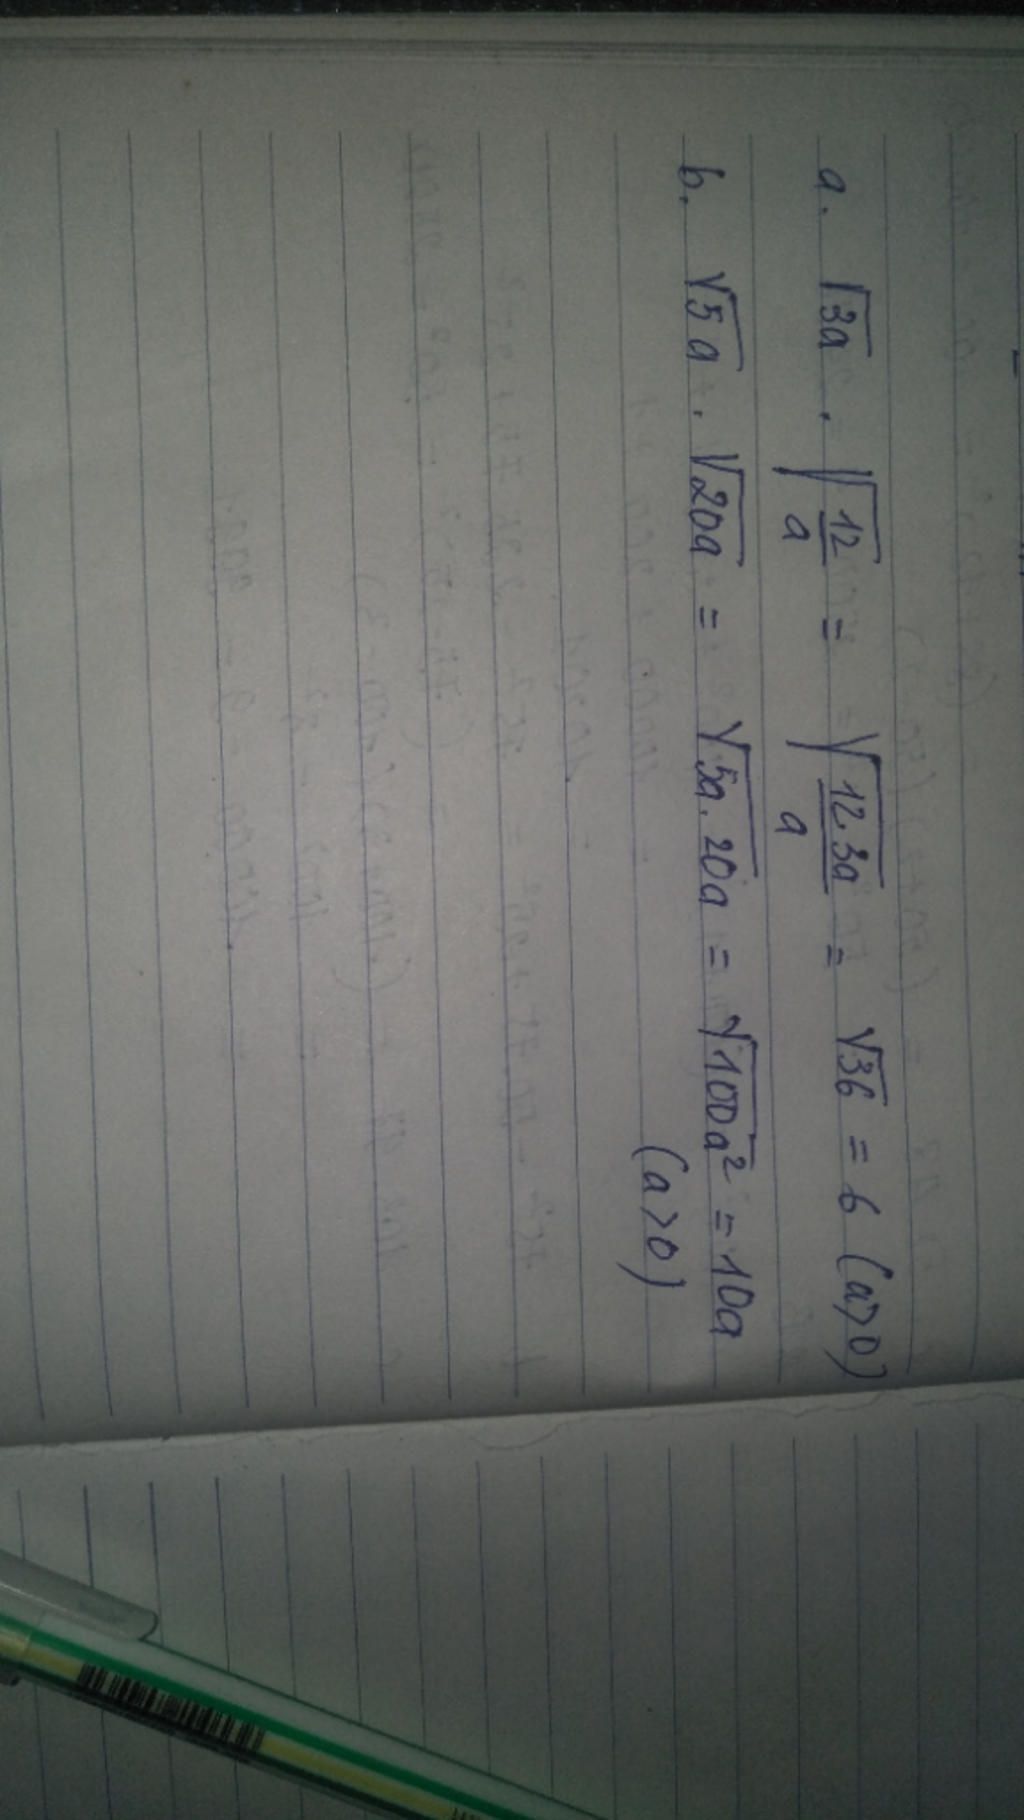 a. √3a . √12/a = √12.3a/a = √36 = 6 (a>0)
b. √5a . √20a = √5a.20a = √100a² = 10a
(a>0)